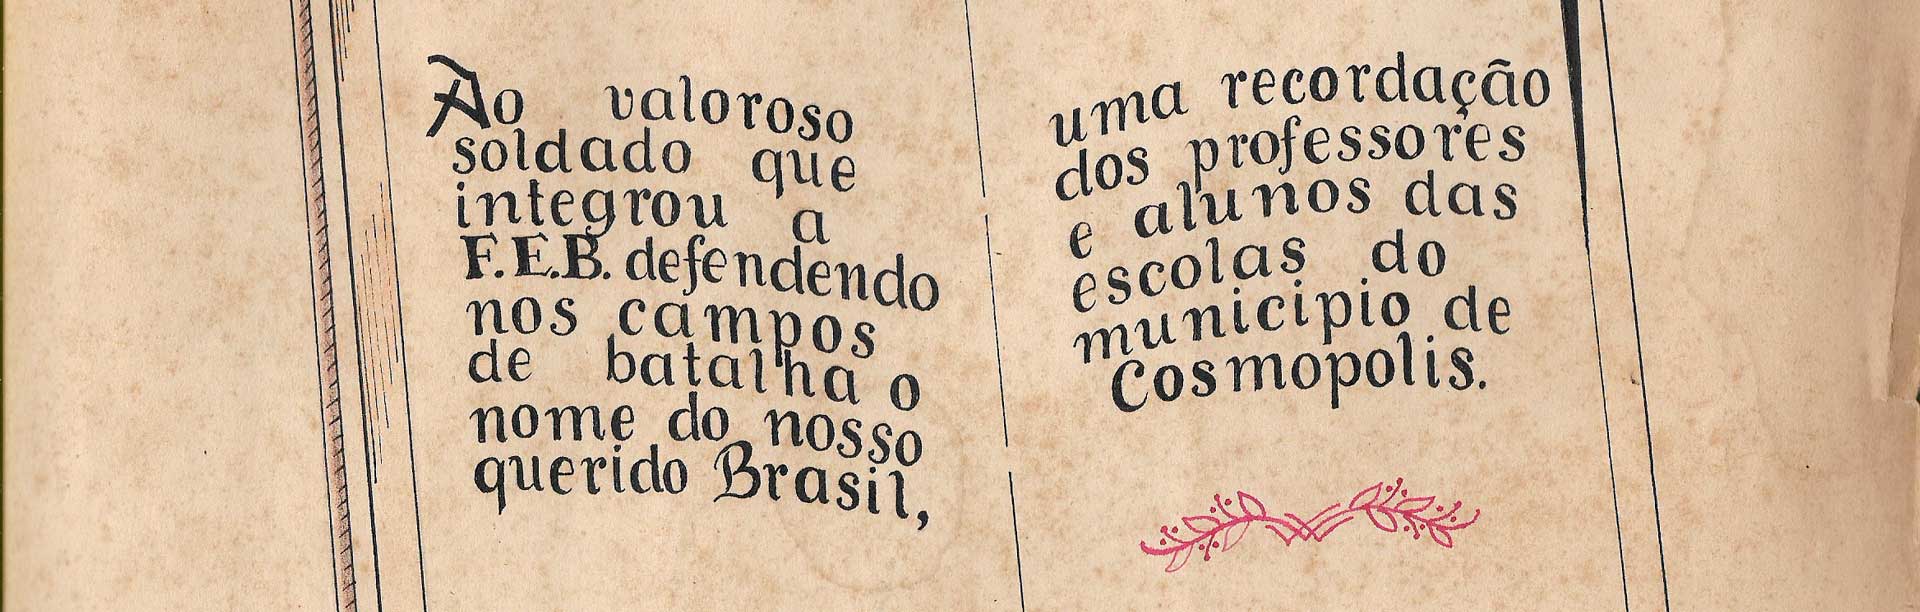 Ao valoroso
soldado que
integrou a
F.E.B. defendendo
nos campos
de batalha o
nome do nosso
querido Brasil,
uma recordação
dos professores
e alunos das
escolas do
municipio de
Cosmopolis.